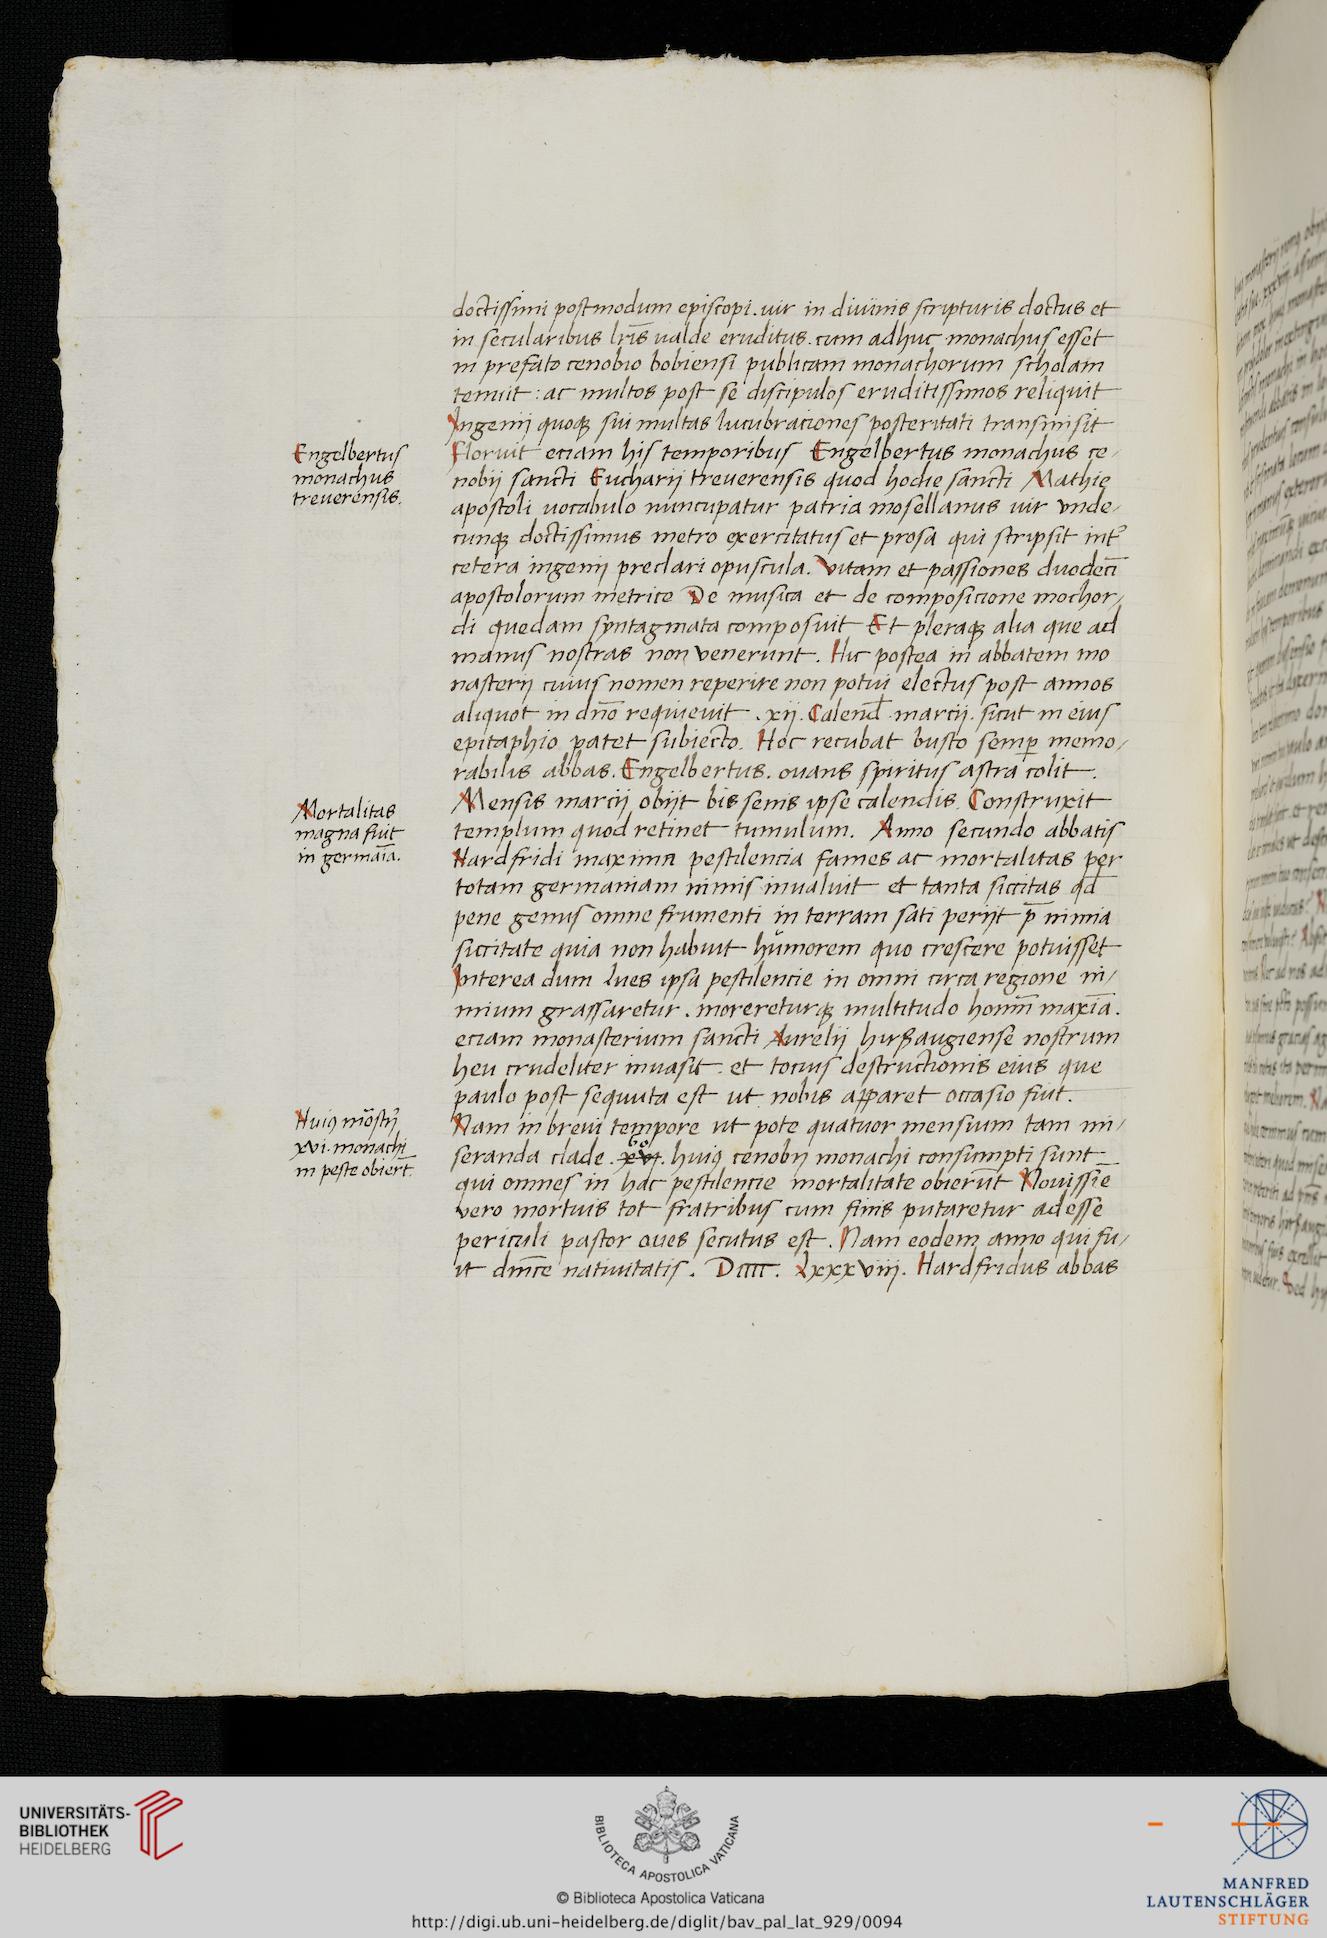 doctissimi postmodum episcopi. uir in diuinis scripturis doctus et
in secularibus lr̄is ualde eruditus. cum adhuc monachus esset
in prefato cenobio bobiensi publicam monachorum scholam
tenuit: ac multos post se discipulos eruditissimos reliquit
Ingenij quoqꝫ sui multas lucubraciones posteritati transmisit
Engelbertus
monachus
treuerensis.
Floruit eciam his temporibus Engelbertus monachus ce-
nobij sancti Eucharij treuerensis quod hodie sancti Mathie
apostoli uocabulo nuncupatur patria mosellanus uir vnde-
cunqꝫ doctissimus metro exercitatus et prosa qui scripsit int̉
cetera ingenij preclari opuscula. Vitam et passiones duodeci̅
apostolorum metrice De musica et de composicione mochor-
di quedam syntagmata composuit Et pleraqꝫ alia que ad
manus nostras non venerunt. Hic postea in abbatem mo
nasterij cuius nomen reperire non potui electus post annos
aliquot in dn̄o requieuit .xij. Calend̄ marcij. sicut in eius
epitaphio patet subiecto. Hoc recubat busto semꝑ memo-
rabilis abbas. Engelbertus. ouans spiritus astra colit.
Mortalitas
magna fuit
in germai̅a.
Mensis marcij obijt bis senis ipse calendis. Construxit
templum quod retinet tumulum. Anno secundo abbatis
Hardfridi maxima pestilencia fames ac mortalitas per
totam germaniam nimis inualuit et tanta siccitas qd̄
pene genus omne frumenti in terram sati perijt p̄ nimia
siccitate quia non habuit humorem quo crescere potuisset
Interea dum lues ipsa pestilencie in omni circa regione ni-
mium grassaretur. morereturqꝫ multitudo homi̅ maxi̅a.
eciam monasterium sancti Aurelij hirßaugiense nostrum
heu crudeliter inuasit. et tocius destructionis eius que
paulo post sequuta est ut nobis apparet occasio fuit.
Huiꝰ mo̅str̉ij
xvi. monachi
in peste obiert̄.
Nam in breui tempore ut pote quatuor mensium tam mi-
60
seranda clade .xvj. huiꝰ cenobij monachi consumpti sunt
qui omnes in hac pestilencie mortalitate obieru̅t Nouissi̅e
vero mortuis tot fratribus cum finis putaretur adesse
periculi pastor oues secutus est. Nam eodem anno qui fu-
it dn̅ice natiuitatis. Dcccc. Lxxxviij. Hardfridus abbas
UNIVERSITÄTS-
BIBLIOTHEK
HEIDELBERG
BIBLIOTECA APOSTOLICA VATICANA
© Biblioteca Apostolica Vaticana
http://digi.ub.uni-heidelberg.de/diglit/bav_pal_lat_929/0094
MANFRED
LAUTENSCHLÄGER
STIFTUNG